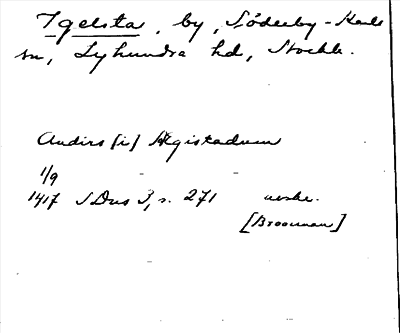 Igelsta, by, Söderby-Karls
sn, Lyhundra hd, Stockh.
Anders [i] Ægistadum
1/9
1417 SDns 3, s. 271 avskr.
[Brooman]